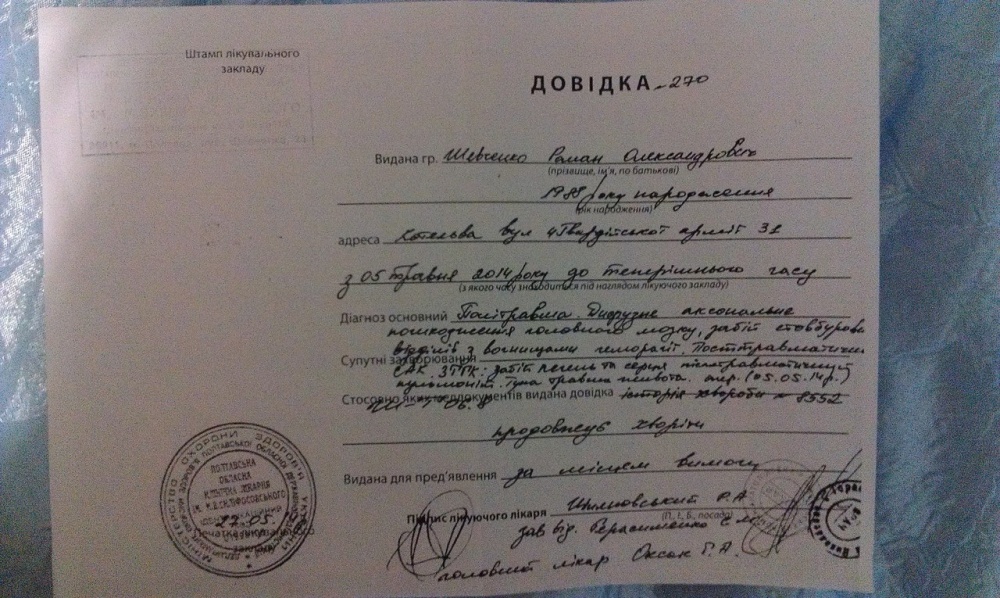 Штамп лікувального
закладу
ДОВІДКА № 270
Видана гр. Шевченко Роман Олександрович
(прізвище, ім'я, по батькові)
1988 року народження
(рік народження)
адреса Котельва вул 4 Гвардійської армії 31
з 05 травня 2014 року до теперішнього часу
(з якого часу знаходиться під наглядом лікуючого закладу)
Діагноз основний Політравма. Дифузне аксональне
пошкодження головного мозку, забій стовбурових
відділів з вогнищами геморагії. Посттравматичний
Супутні захворювання
САК. ЗТГК: забій легень та серця
пульмоніт. Тупа травма живота. опер. (05.05.14р.)
Стосовно яких меддокументів видана довідка історія хвороби № 8552
продовжує хворіти
Видана для пред'явлення за місцем вимоги
Підпис лікуючого лікаря
(П., І., Б., посада)
зав від. Герасименко
головний лікар Оксак Г.А.
МІНІСТЕРСТВО ОХОРОНИ ЗДОРОВ'Я
ПОЛТАВСЬКА
ОБЛАСНА
КЛІНІЧНА ЛІКАРНЯ
ІМ. М.В.СКЛІФОСОВСЬКОГО
27.05.
Печатка лікувального
закладу